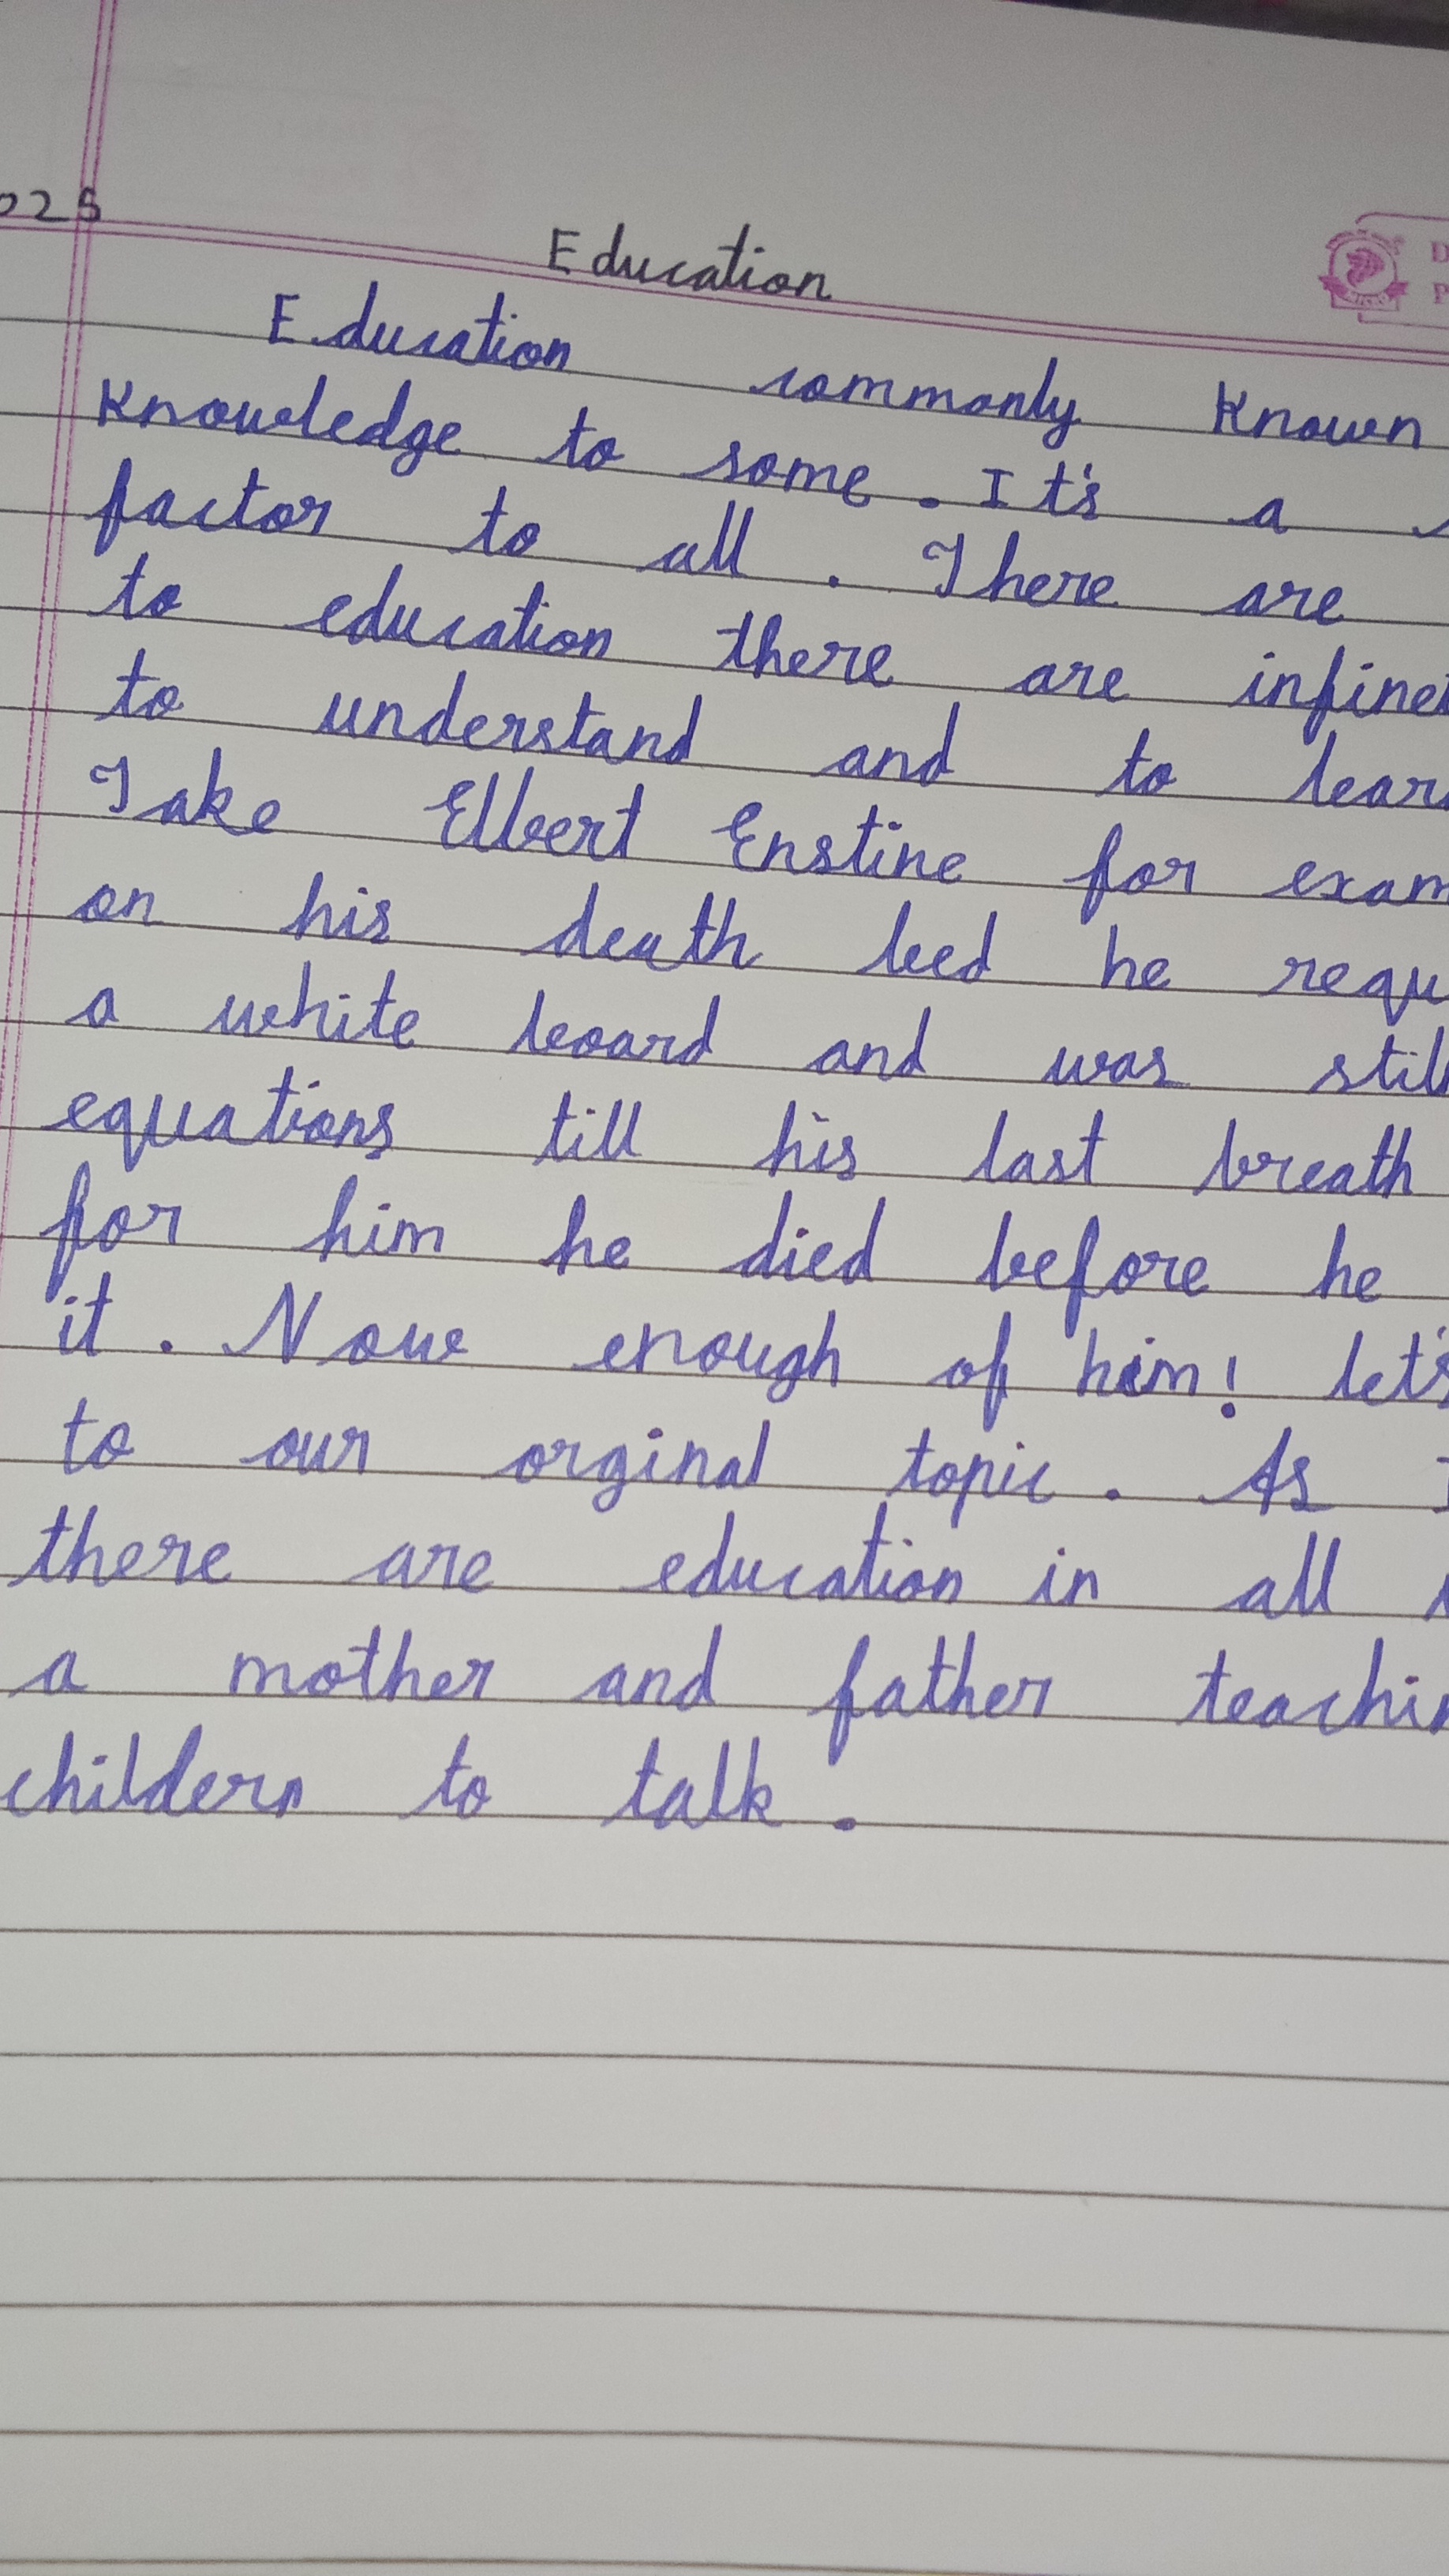 025
Education
Education commonly known
knowledge to some. It's a
factor to all. There are
to education there are infinet
to understand and to lear
Take Elbert Enstine for exam
on his death bed he requ
a white board and was still
equations till his last breath
for him he died before he
it. Now enough of him! let's
to our orginal topic. As I
there are education in all
a mother and father teachin
childern to talk.